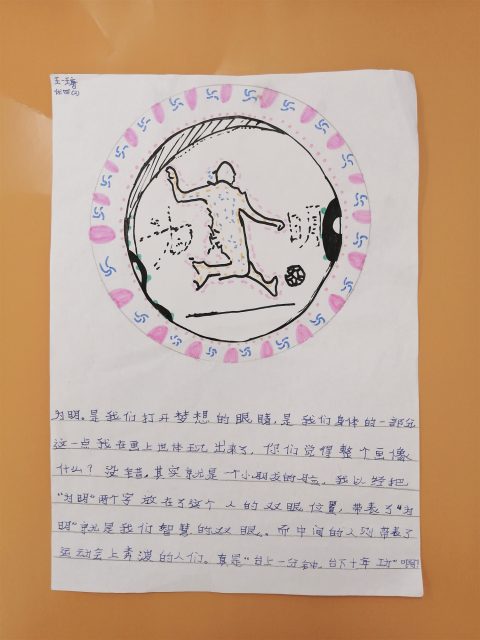 为明。是我们打开梦想的眼睛,是我们身体的一部分
这一点我在画上也体现出来了,你们觉得整个画像
什么?没错,其实就是一个小朋友的脸,我以经把
"为明"两个字放在了这个人的双眼位置,带表了"为
明"就是我们智慧的双眼。而中间的人则带表了
运动会上奔波的人们。真是"台上一分钟,台下十年功"啊!